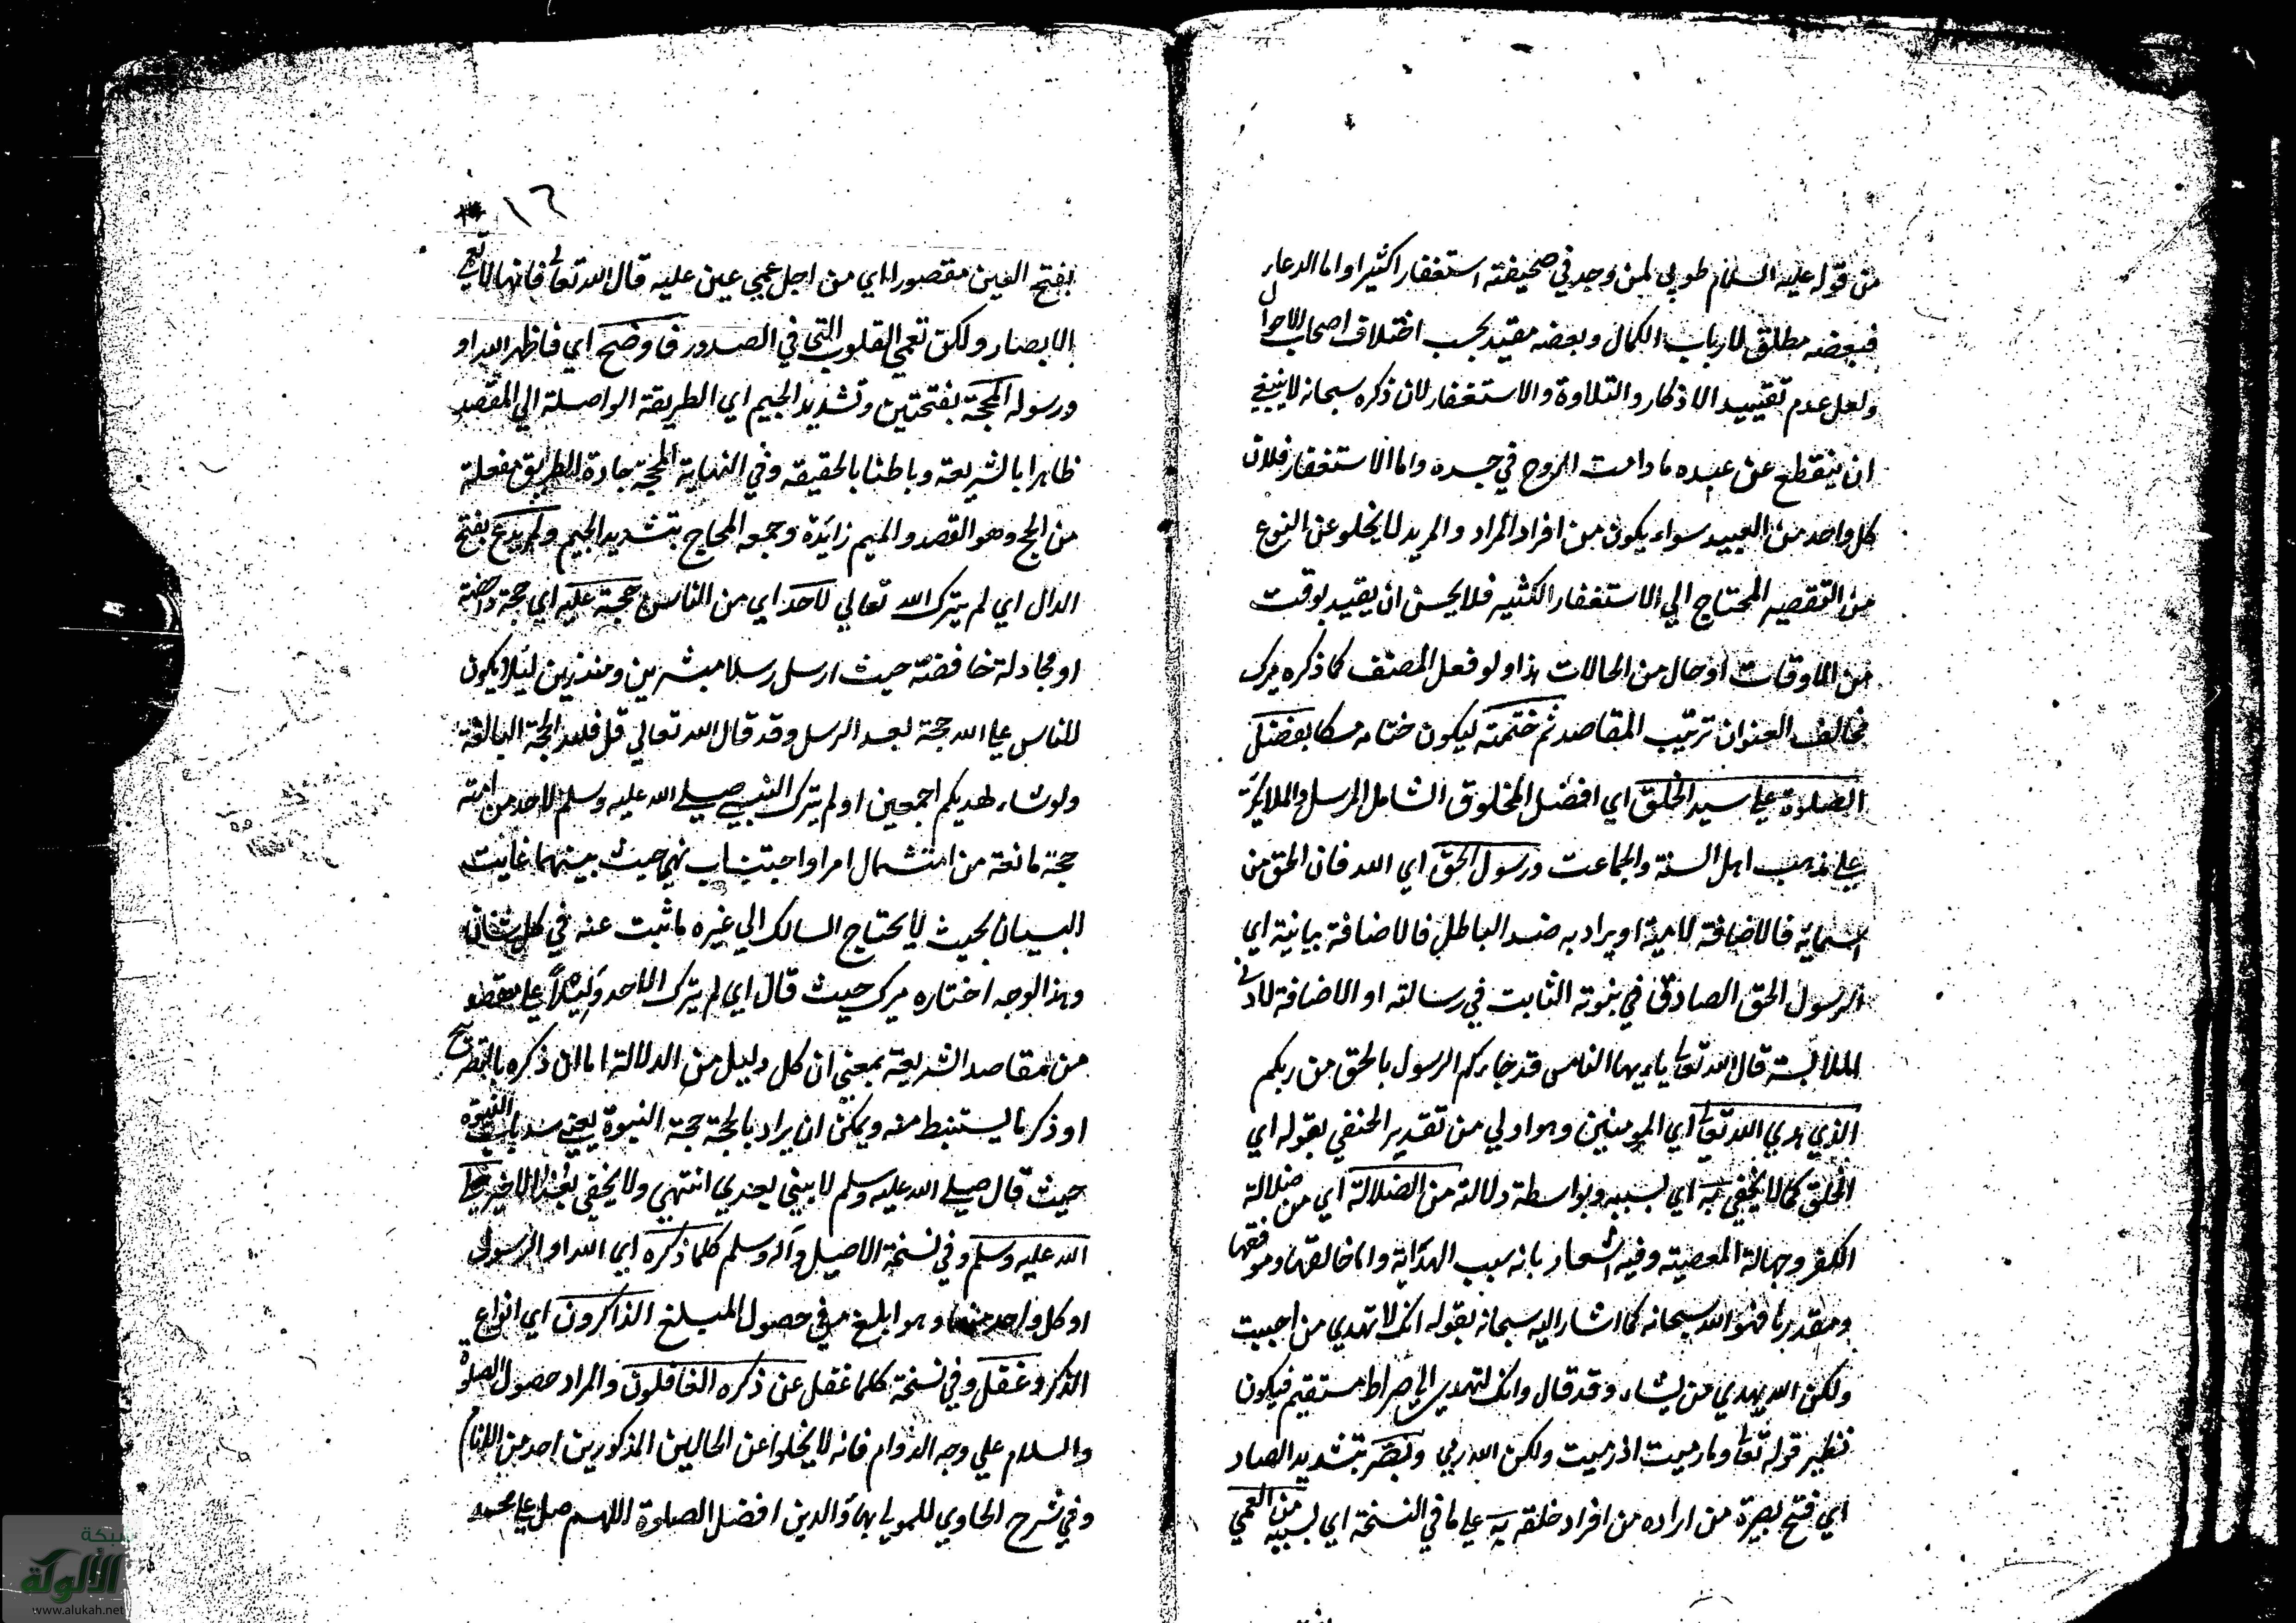 من قوله عليه السلام طوبى لمن وجد في صحيفته استغفارا كثيرا واما الدعاء
فبعضه مطلق لارباب الكمال وبعضه مقيد بحسب اختلاف اصحاب الاحوال
ولعل عدم تقييد الاذكار والتلاوة والاستغفار لان ذكره سبحانه لا ينبغي
ان ينقطع عن عبده ما دامت الروح في جسده واما الاستغفار فلان
كل واحد من العبيد سواء يكون من افراد المراد والمريد لا يخلو عن النوع
من التقصير المحتاج الي الاستغفار الكثير فلا يحسن ان يقيد بوقت
من الاوقات او حال من الحالات هذا ولو فعل المصنف كما ذكره ميرك
لخالف العنوان ترتيب المقاصد ثم ختمته ليكون ختامه مسكا بفضل
الصلوة علي سيد الخلق اي افضل المخلوق الشامل للرسل والملائكة
علي مذهب اهل السنة والجماعت ورسول الحق اي الله فان الحق من
اسمائه فالاضافة لامية او يراد به ضد الباطل فالاضافة بيانية اي
الرسول الحق الصادق في نبوته الثابت في رسالته او الاضافة لادني
الملابسة قال الله تعالى ياءيها الناس قد جاءكم الرسول بالحق من ربكم
الذي هدي الله تعالى اي المومنين وهو اولي من تقدير الحنفي بقوله اي
الخلق كما لا يخفي به اي بسببه وبواسطة دلالته من الضلالة اي من ضلالة
الكفر وجهالة المعصية وفيه اشعار بانه سبب الهداية واما خالقها وموفقها
ومقدرها فهو الله سبحانه كما اشار اليه سبحانه بقوله انك لا تهدي من احببت
ولكن الله يهدي من يشاء وقد قال وانك لتهدي الي صراط مستقيم فيكون
نظير قوله تعالى وما رميت اذ رميت ولكن الله رمي وبصّر بتشديد الصاد
اي فتح بصيرة من اراده من افراد خلقه به علي ما في النسخة اي بسببه من العمي
١٦
بفتح العين مقصورا اي من اجل عمي عين عليه قال الله تعالى فانها لا تعمي
الابصار ولكن تعمي القلوب التي في الصدور فاوضح اي فاظهر الله او
ورسوله المحجة بفتحتين وتشديد الجيم اي الطريقة الواصلة الي المقصد
ظاهرا بالشريعة وباطنا بالحقيقة وفي النهاية المحجة جادة الطريق مفعلة
من الحج وهو القصد والميم زائدة وجمعه المحاج بتشديد الجيم ولم يدع بفتح
الدال اي لم يترك الله تعالي لاحد اي من الناس حجة عليه اي حجة داحضة
او مجادلة خافضة حيث ارسل رسلا مبشرين ومنذرين ليئلا يكون
للناس علي الله حجة بعد الرسل وقد قال الله تعالي قل فلله الحجة البالغة
ولو شاء لهديكم اجمعين او لم يترك النبي صلي الله عليه وسلم لاحد من امته
حجة مانعة من امتثال امر او اجتناب نهي حيث بينهما غايت
البيان بحيث لا يحتاج السالك الي غيره ما ثبت عنه في كل شان
وهذا الوجه اختاره ميرك حيث قال اي لم يترك لاحد دليلا علي مقصد
من مقاصد الشريعة بمعني ان كل دليل من الدلالة اما ان ذكره بالتصريح
او ذكر ما يستنبط منه ويمكن ان يراد بالحجة حجة النبوة يعني سد باب النبوة
حيث قال صلي الله عليه وسلم لا نبي بعدي انتهي ولا يخفي بعد الاخير صلي
الله عليه وسلم وفي نسخة الاصيل وآله وسلم كلما ذكره اي الله او الرسول
او كل واحد منهما وهو ابلغ في حصول المبلغ الذاكرون اي انواع
الذكر وغفل وفي نسخة كلما غفل عن ذكره الغافلون والمراد حصول الصلوة
والسلام علي وجه الدوام فانه لا يخلوا عن الحالين المذكورين احد من الانام
وفي شرح الحاوي للمولي بهاؤ الدين افضل الصلوة اللهم صل علي محمد
شبكة
الألوكة
www.alukah.net